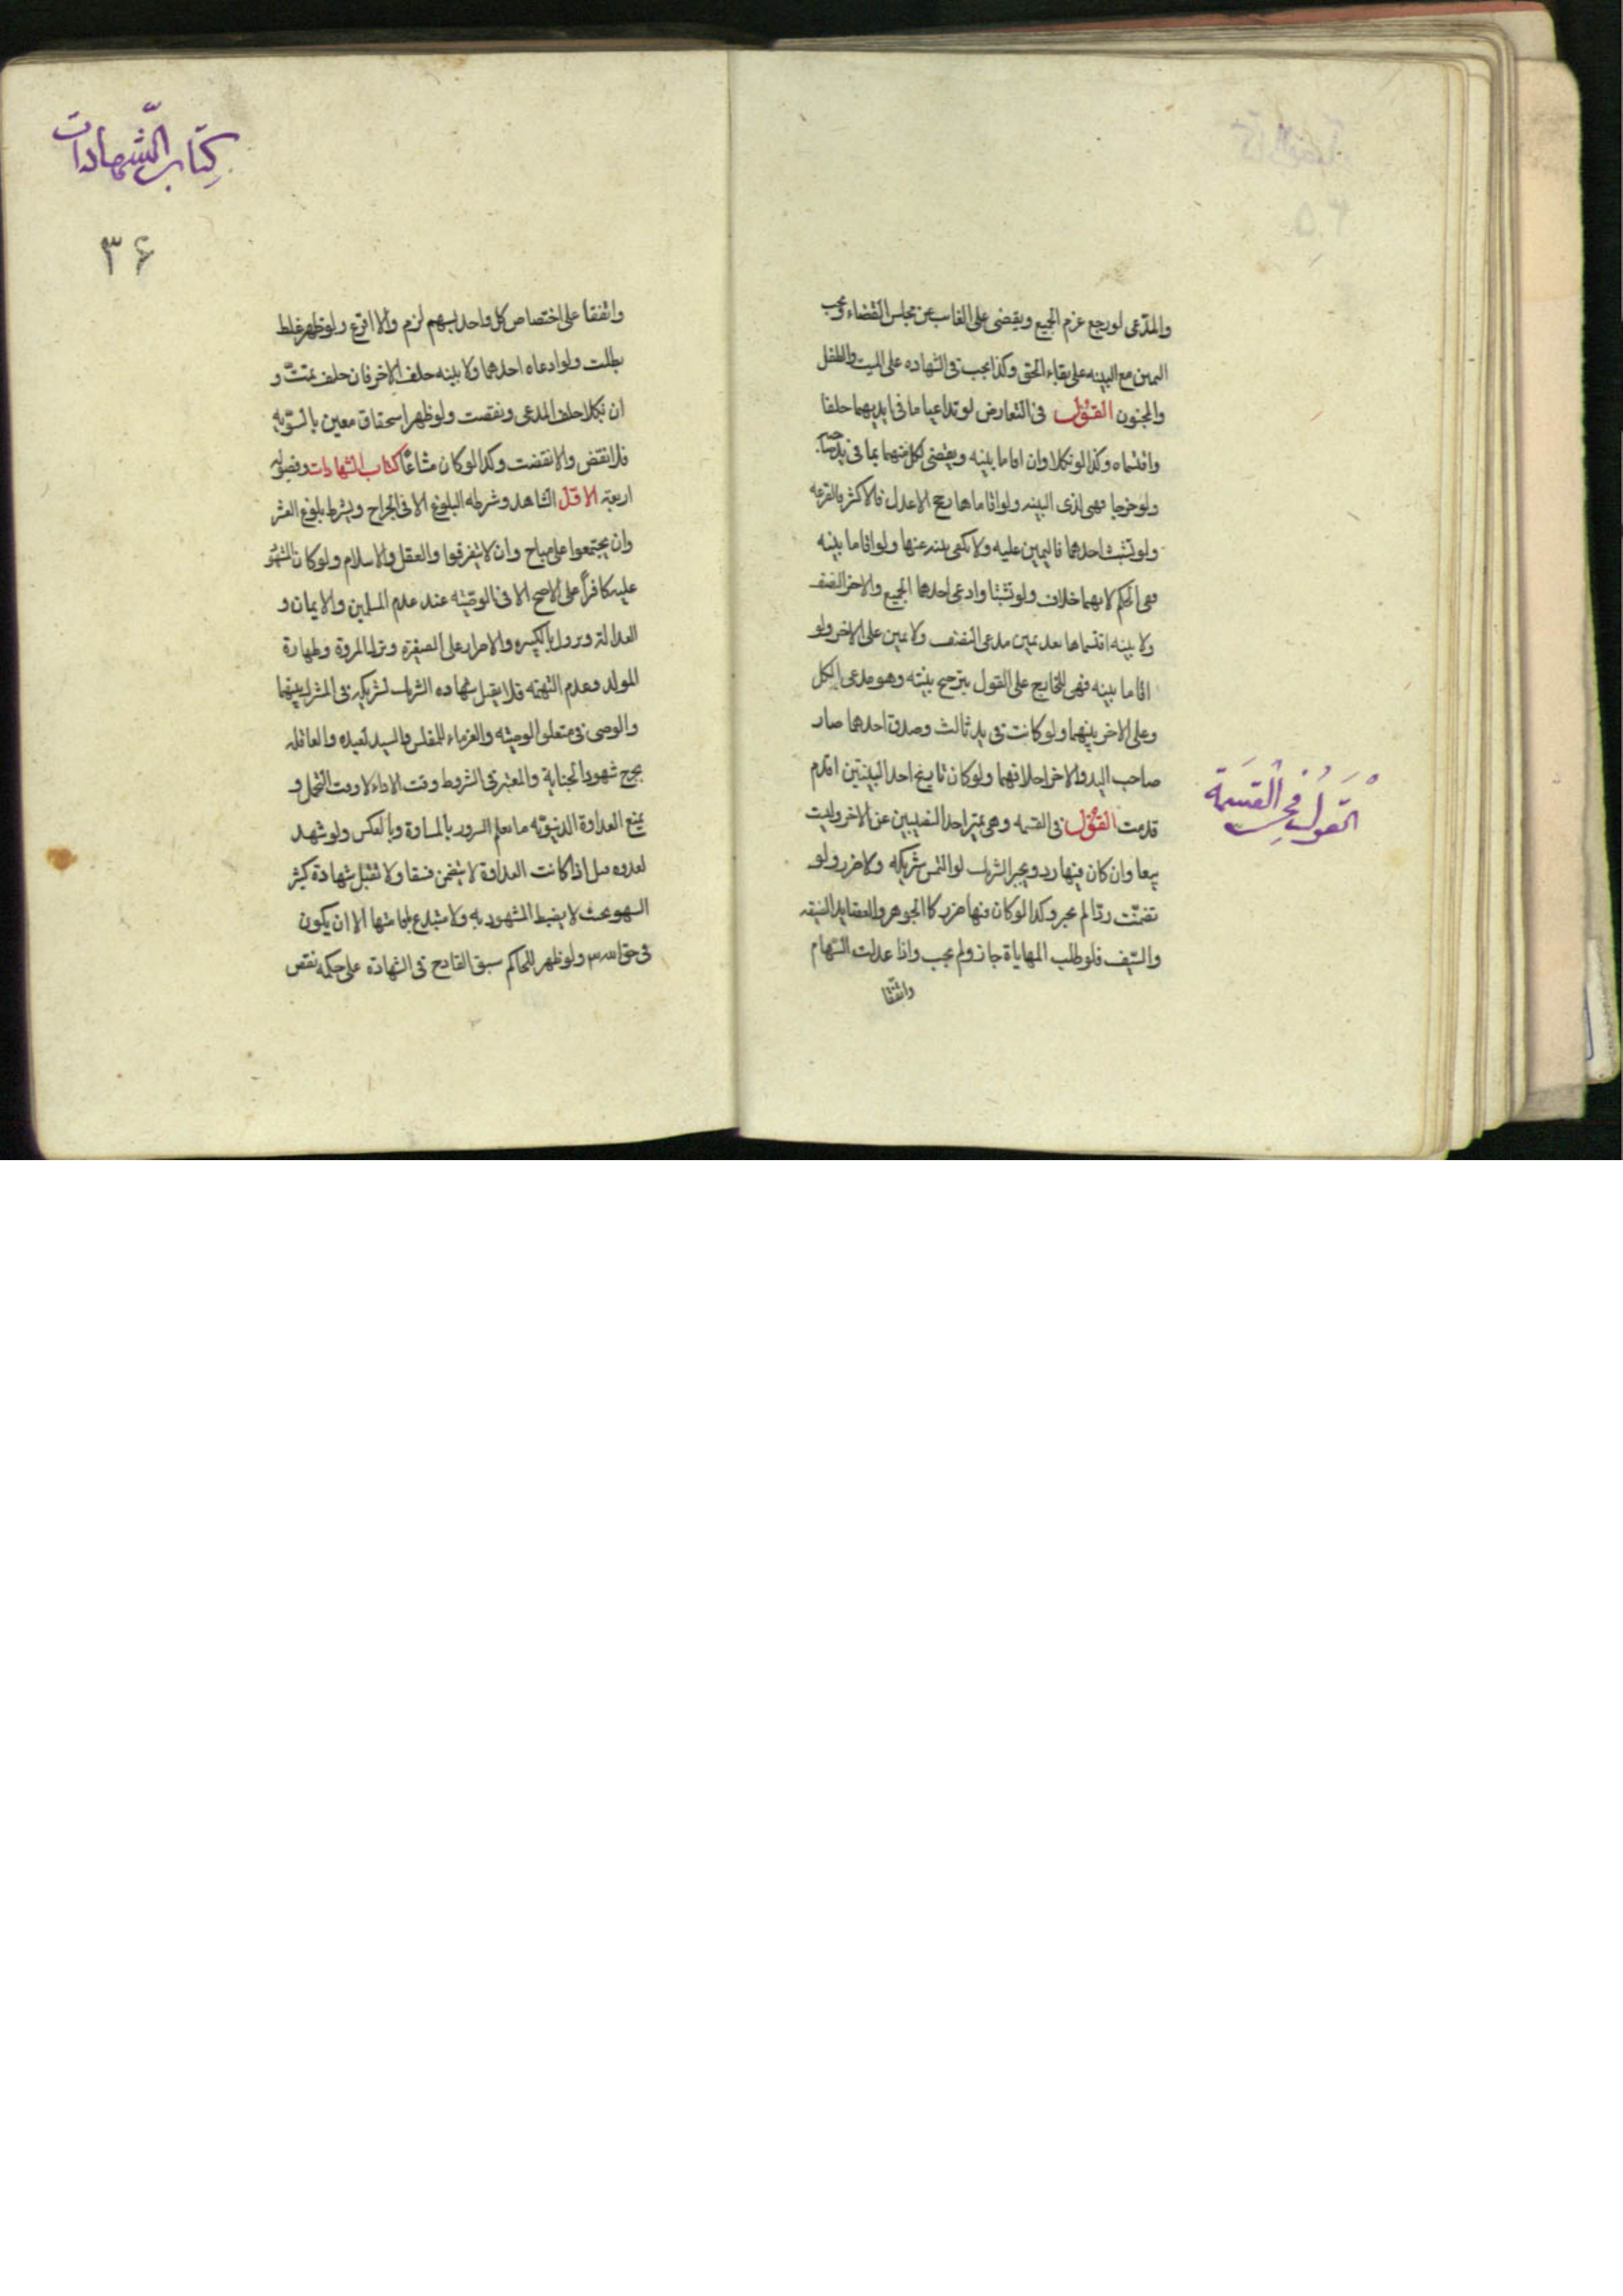 والمدّعى لو رجع غرم الجميع ويقضى على الغائب عن مجلس القضاء ويجب
اليمين مع البينه على بقاء الحق وكذا يجب فى الشهاده على الميت والطفل
والمجنون القول فى التعارض لو تداعيا ما فى ايديهما حلفا
واقتسماه وكذا لو نكلا وان اقاما بينه ويقضى لكل منهما بما فى يد صاحبه
ولو خرجا فهى لذى البينه ولو اقاماها رجح الاعدل فالاكثر فالقرعه
ولو تشبث احدهما فاليمين عليه ولا يكفى بينه عنها ولو اقاما بينه
ففى الحكم لايهما خلاف ولو تشبثا وادعى احدهما الجميع والاخر النصف
ولا بينه اقتسماها بعد يمين مدعى النصف ولا يمين على الاخر ولو
اقاما بينه فهى للخارج على القول بترجيح بينته وهو مدعى الكل
وعلى الاخر بينهما ولو كانت فى يد ثالث وصدق احدهما صار
صاحب اليد وللاخر احلافهما ولو كان تاريخ احد البينتين اقدم
قدمت القول فى القسمه وهى تميز احد النصيبين عن الاخر وليست
بيعا وان كان فيها رد ويجبر الشريك لو التمس شريكه ولا ضرر ولو
تضمنت ردّا لم يجبر وكذا لو كان فيها ضرر كالجوهر والعضايد الضيقه
والسّيف فلو طلب المهاياة جاز ولم يجب واذا عدلت السّهام
واتّفقا
القَول في القسَمة
كِتاب الشّهادات
٣۶
واتفقا على اختصاص كل واحد بسهم لزم والا اقرع ولو ظهر غلط
بطلت ولو ادعاه احدهما ولا بينه حلف الاخر فان حلف تمّت و
ان نكل حلف المدعى ونقضت ولو ظهر استحقاق معين بالسّويه
فلا نقض والا نقضت وكذا لو كان مشاعًا كتاب الشهادات وفصوله
اربعة الاوّل الشاهد وشرطه البلوغ الا فى الجراح ويشترط بلوغ العشر
وان يجتمعوا على مباح وان لا يتفرقوا والعقل والاسلام ولو كان المشهود
عليه كافراً على الاصح الا فى الوصيّه عند عدم المسلمين والايمان و
العدالة ويزول بالكبيره والاصرار على الصغيرة وبترك المروة وطهارة
المولد وعدم التهمه فلا يقبل شهاده الشريك لشريكه فى المشترك بينهما
والوصى فى متعلق الوصيّه والغرماء للمفلس والسيد لعبده والعاقله
بجرح شهود الجناية والمعتبر فى الشروط وقت الاداء لا وقت التحمل و
يمنع العداوة الدنيويّه ما يعلم السرور بالمساءة وبالعكس ولو شهد
لعدوه قبل اذا كانت العداوة لا يتضمن فسقا ولا تقبل شهادة كثير
السهو بحيث لا يضبط المشهود به ولا متبدع باقامتها الا ان يكون
فى حق الله ولو ظهر للحاكم سبق القادح فى الشهادة على حكمه نقض